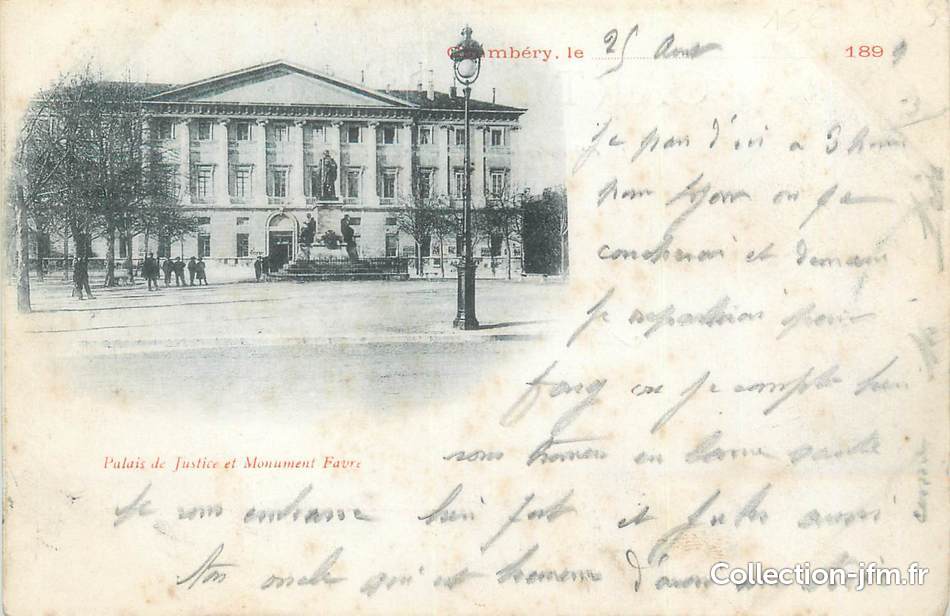 Chambéry, le 25 Aout 189
Je pars d'ici a 3 heures
pour Lyon ou je
coucherai et demain
je repartirai pour
ou je compte bien
vous trouver en bonne santé
Je vous embrasse bien fort et
Ton oncle qui est heureux d'avoir
Palais de Justice et Monument Favre
Collection-jfm.fr